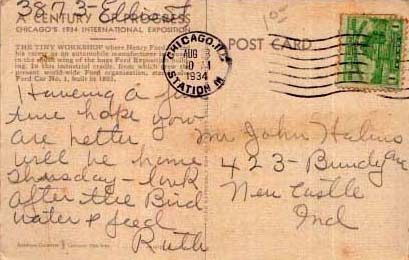 3873-Elliott
A CENTURY OF PROGRESS
CHICAGO'S 1934 INTERNATIONAL EXPOSITION
THE TINY WORKSHOP where Henry Ford
his career as an automobile manufacturer
in the wing of the huge Ford Exposition build-
ing. In this industrial cradle, from which
present world-wide Ford organization,
Ford Car No. 1, built in 1893.
POST CARD
CHICAGO, ILL.
AUG 8
1934
STATION
1¢
Having a fine
time hope you
are better
will be home
Thursday - look
after the Bird
water & feed
Ruth
Mr John
423 - Bundy Ave
New Castle
Ind